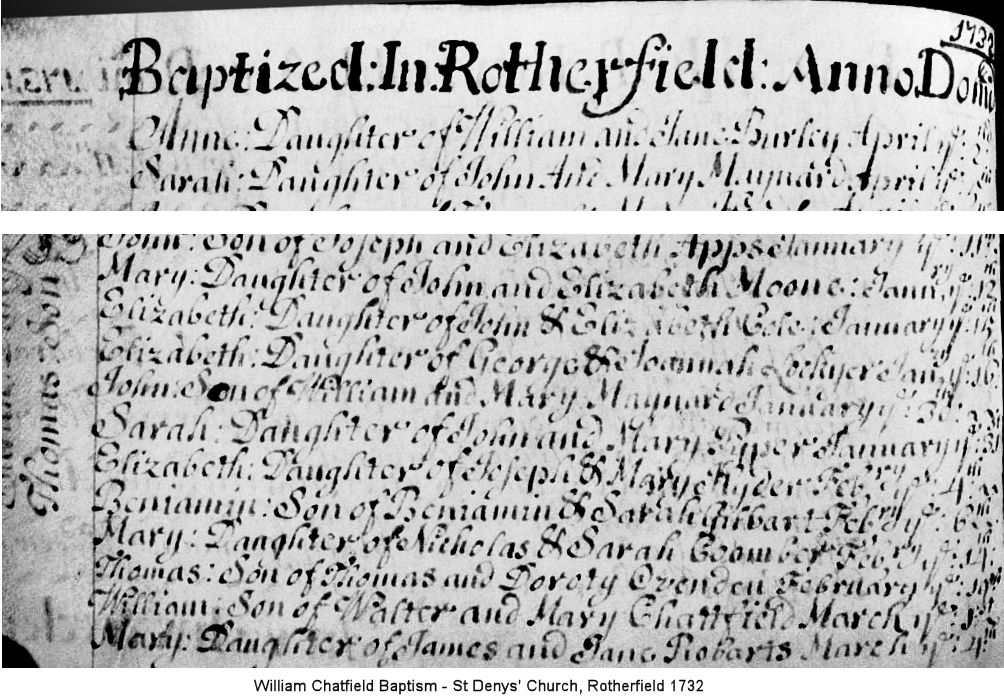 1732
Baptized: In: Rotherfield: Anno Domi
Anne: Daughter of William and Jane Burley April ye: 2
Sarah: Daughter of John And Mary Maynard April ye:
John: Son of Joseph and Elizabeth Apps January ye: 11th
Mary: Daughter of John and Elizabeth Moone: Janry ye: 12
Elizabeth: Daughter of John & Elizabeth Cole: January ye:
Elizabeth: Daughter of George & Joannah Lockyer Janry ye: 16
John: Son of William and Mary Maynard January ye: 30:
Sarah: Daughter of John and Mary Pyper January ye:
Elizabeth: Daughter of Joseph & Mary Ryder Febry ye: 4
Beniamin: Son of Beniamin & Sarah Gilbart Febry ye: 6
Mary: Daughter of Nicholas & Sarah Coomber Febry ye: 14
Thomas: Son of Thomas and Doroty Ovenden February ye:
William: Son of Walter and Mary Chattfield March ye:
Mary: Daughter of James and Jane Robarts March ye: 4th
Thomas Son
William Chatfield Baptism - St Denys' Church, Rotherfield 1732